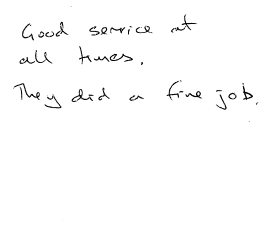 Good service at
all times.
They did a fine job.